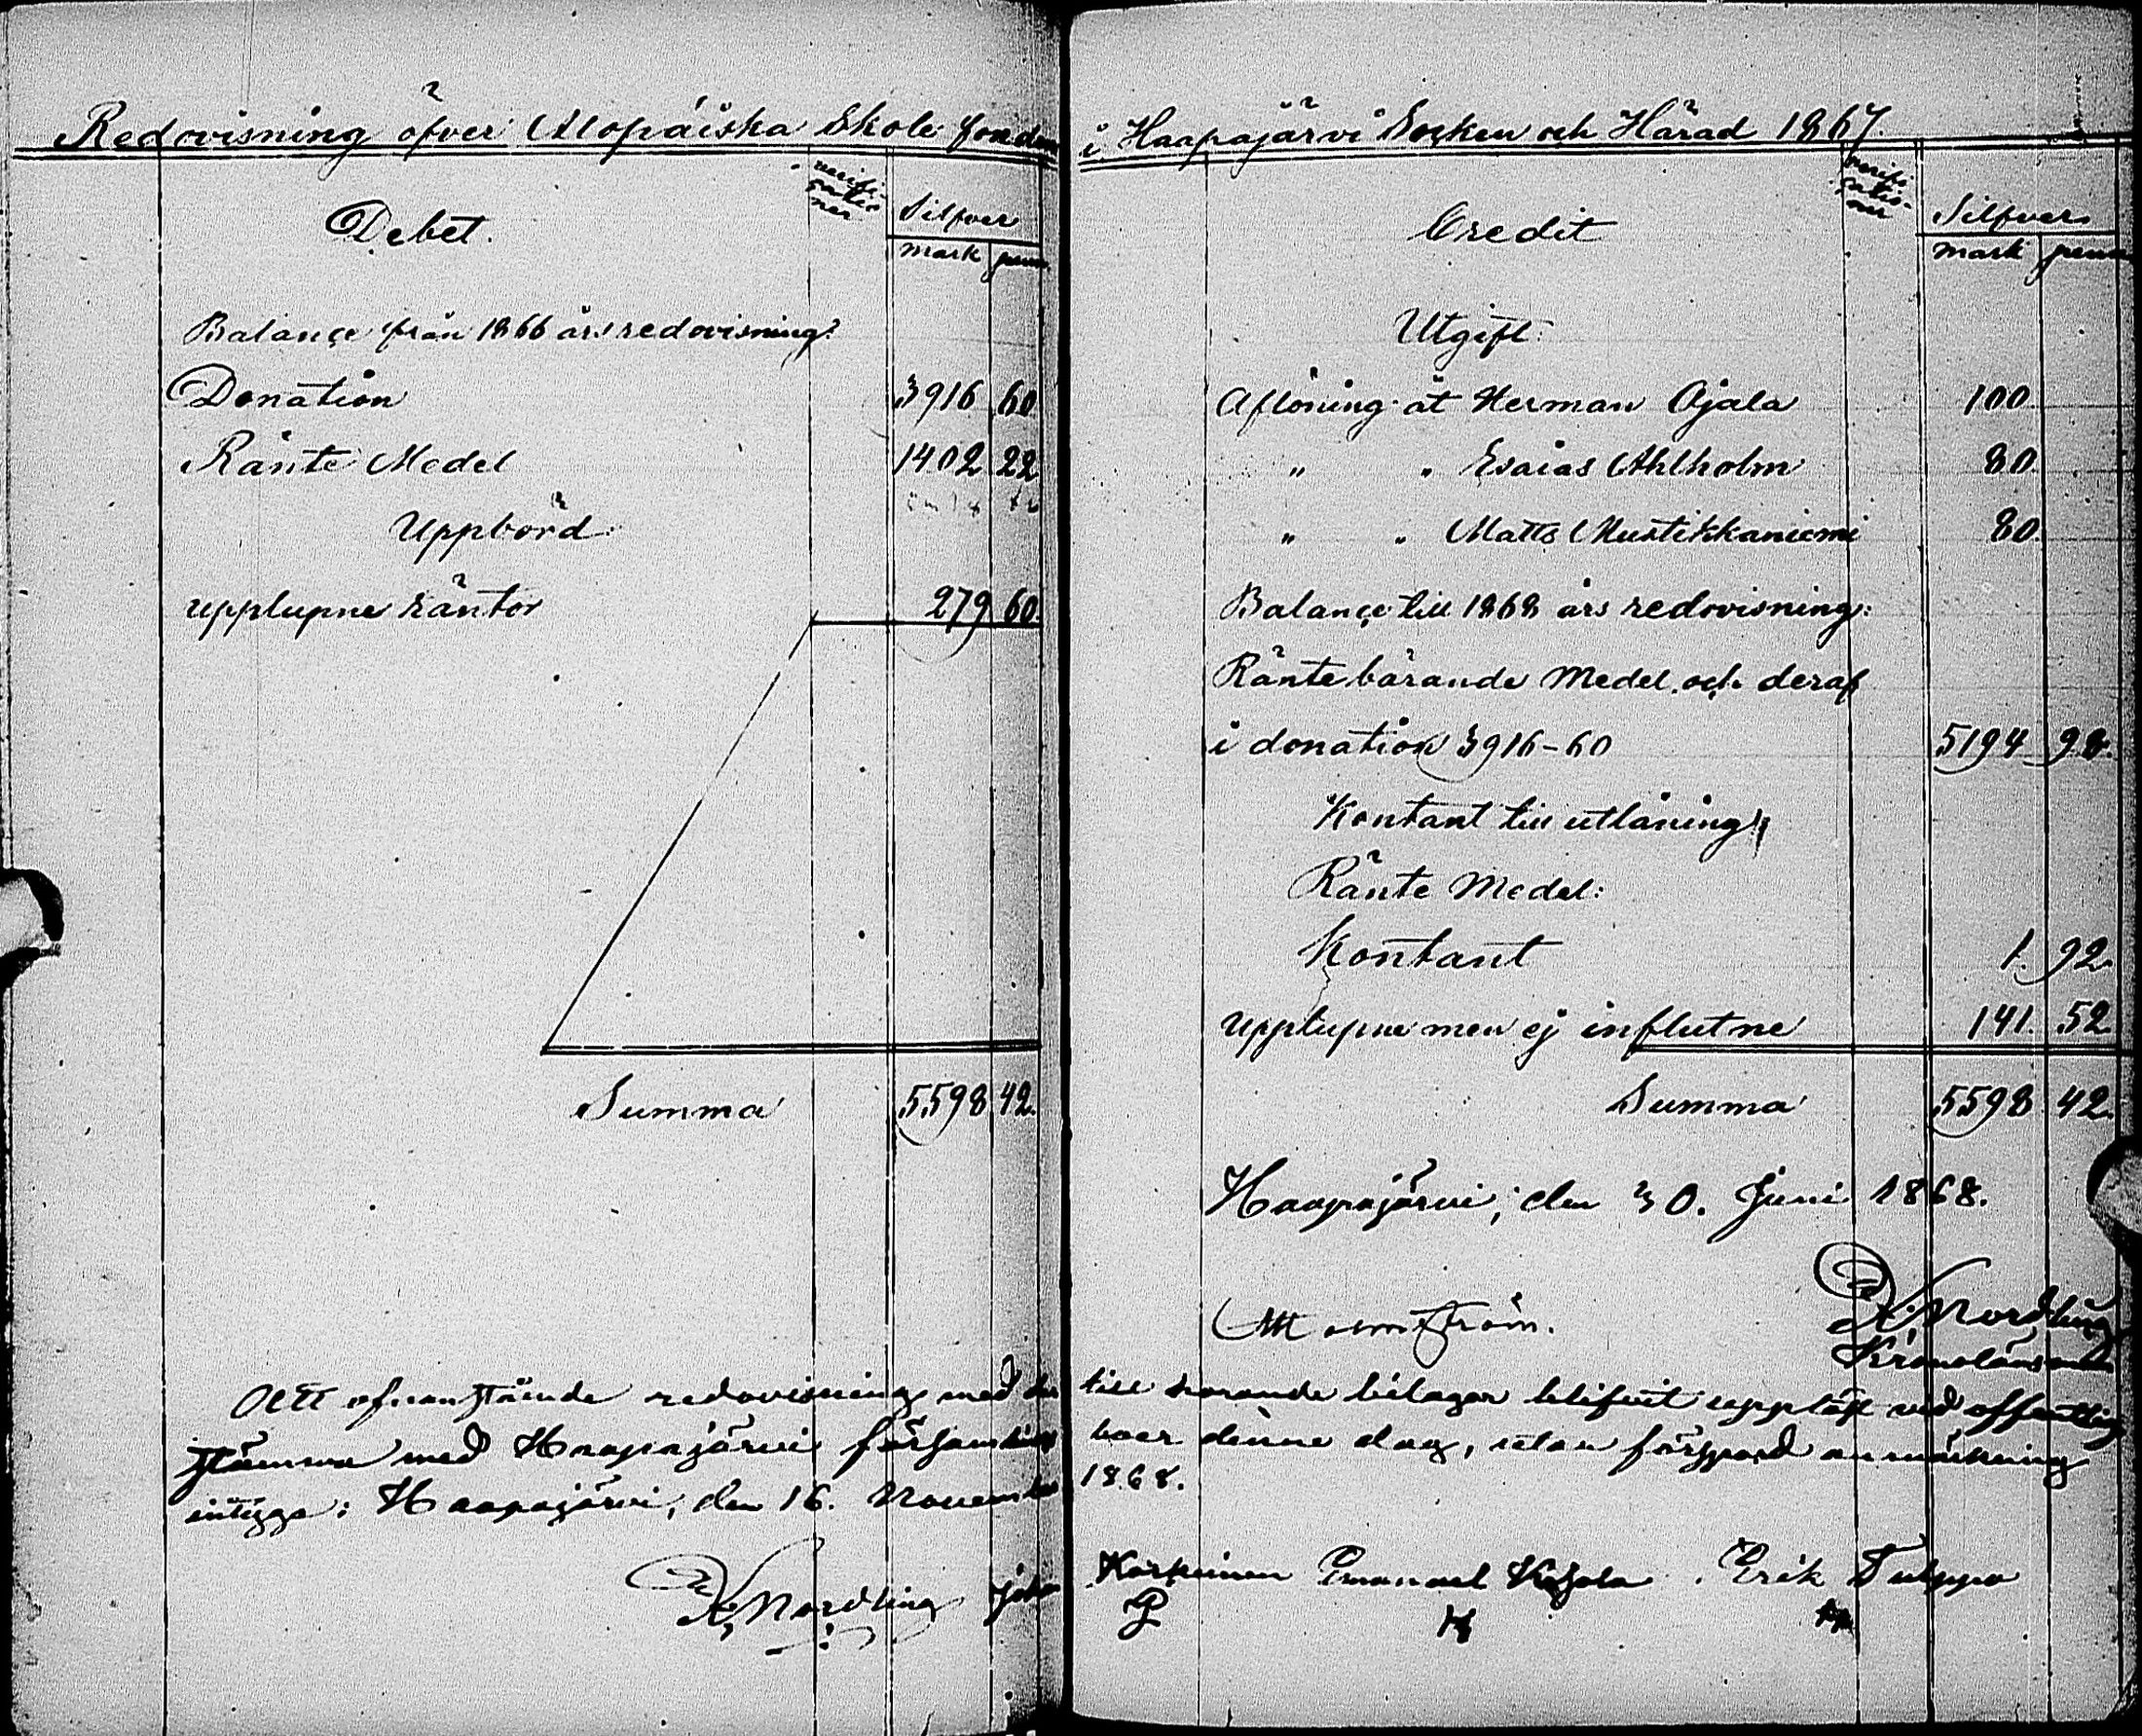 Redovisning öfver Alopäiska Skole fonden i Haapajärvi Socken och Härad 1867.
verifi-
catio-
ner
Silfver
mark penni
Debet.
Balance från 1866 års redovisning:
Donation 3916 60.
Ränte Medel 1402 22
Uppbörd:
upplupne räntor 279 60.
Summa 5598 42.
verifi-
catio-
ner
Silfver
mark penni
Credit
Utgift:
Aflöning åt Herman Ojala 100
" " Esaias Ahlholm 80.
" " Matts Mustikkaniemi 80.
Balance till 1868 års redovisning:
Räntebärande Medel och deraf
i donation 3916-60 5194 98.
Kontant till utlåning
Ränte Medel:
Kontant 1. 92
Upplupne men ej influtne 141. 52
Summa 5598 42.
Haapajärvi, den 30. Juni 1868.
Nordling
Kronolänsman
Att ofvanstående redovisning med der till hörande bilagor blifvit uppläst vid offentlig
stämma med Haapajärvi församlings boer denne dag, utan försport anmärkning
intyga: Haapajärvi, den 16. November 1868.
Nordling Johan Karhunen Emanuel Kojola. Erik Tulppo